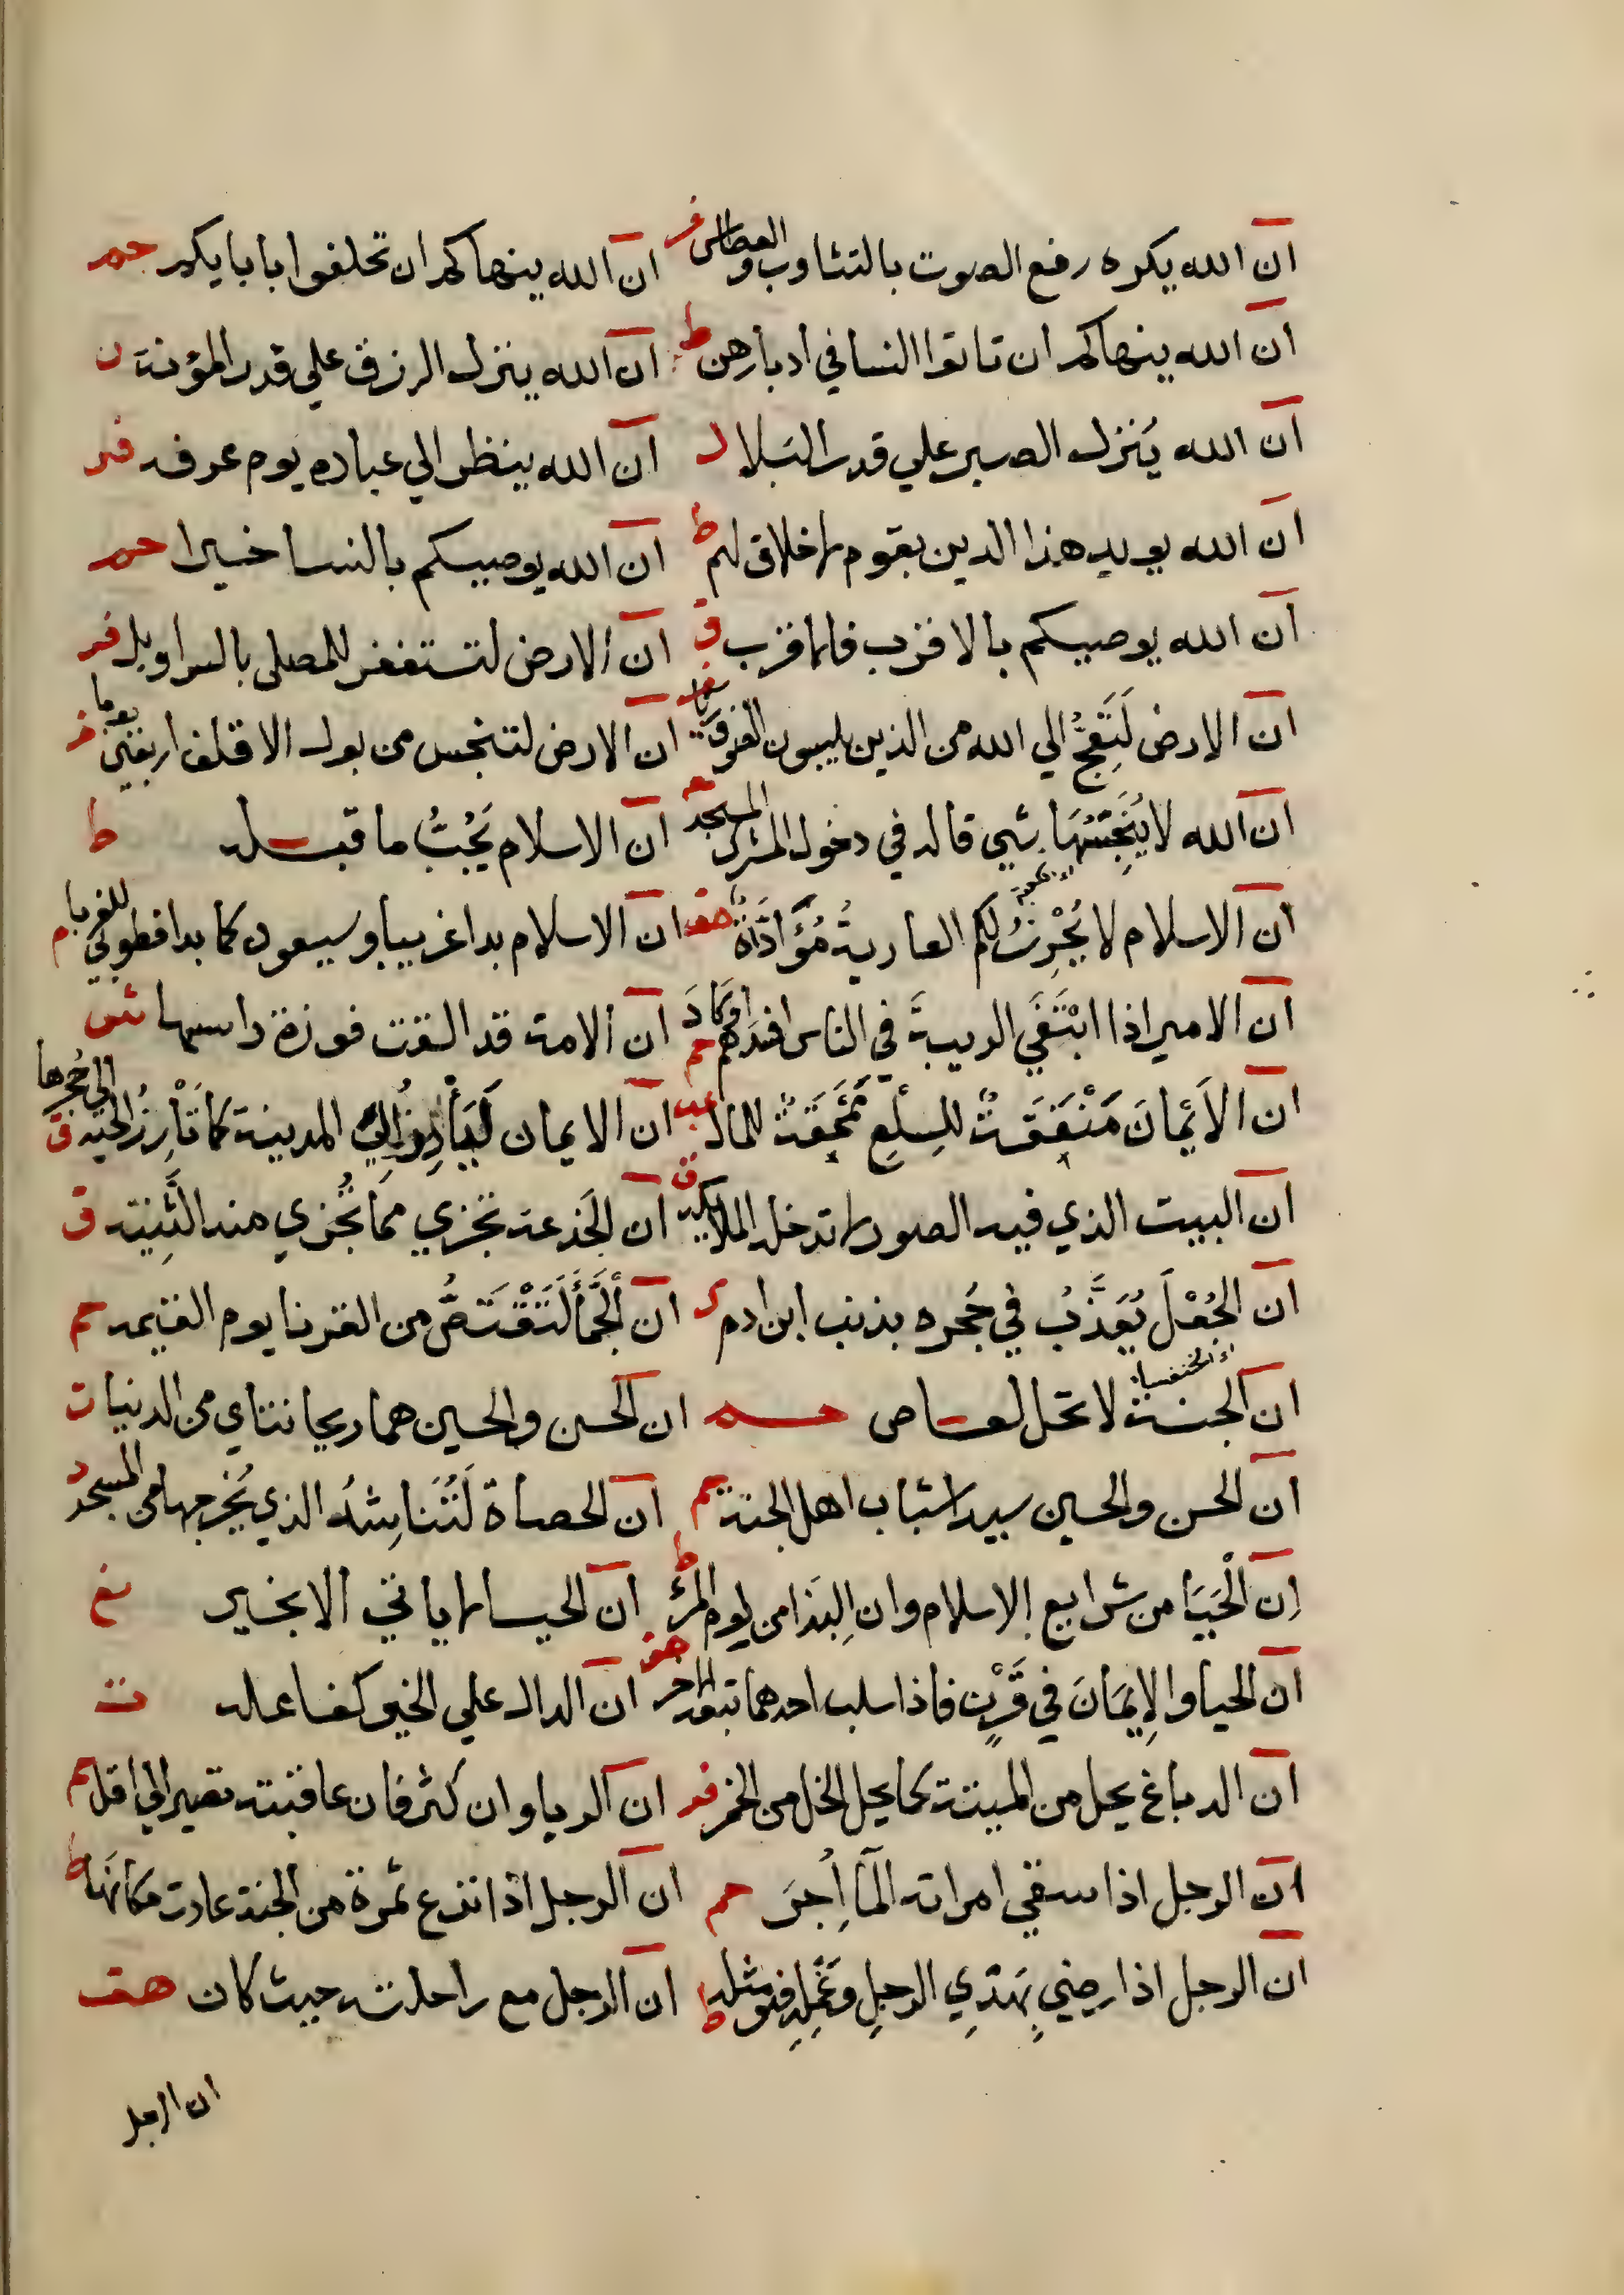 ان الله يكره رفع الصوت بالتثاوب والعطاس فر ان الله ينهاكم ان تحلفوا بابايكم حم
ان الله ينهاكم ان تاتوا النسا في ادبارهن ط ان الله ينزل الرزق علي قدر المؤنة ن
ان الله يُنزل الصبر علي قدر البلا ل ان الله ينظر الي عباده يوم عرفه فر
ان الله يويد هذا الدين بقوم لا خلاق لهم ط ان الله يوصيكم بالنسا خيرا حم
ان الله يوصيكم بالاقرب فالاقرب ق ان الارض لتستغفر للمصلي بالسراويل فر
ان الارض لَتَعِجُّ الي الله من الذين يلبسون الصوف ريا فر ان الارض لتنجس من بول الاقلف اربعين يوما فر
ان الله لا يُنَجِّسُهَا شي قاله في دخول المشرك المسجد ان الاسلام يَجُبُّ ما قبله ط
ان الاسلام لا يُحْرِزُ لكم العارية مُؤَادَّاةٌ هق ان الاسلام بدا غريبا وسيعود كما بدا فطوبي للغربا م
ان الامير اذا ابْتَغَي الريبةَ في الناس افسدهم حم ان الامة قد القت فروة راسها ش
ان الاَيْمانَ مَنْفَقَةٌ للسِلَعِ مَمْحَقَةٌ للمال عب ان الايمان لَيَأْرِزُ اليَ المدينة كما تَأْرِزُ الحية الي جُحرها ق
ان البيت الذي فيه الصور لا تدخله الملايكة ق ان الجَذعة تجزي مما تُجزي منه الثَّنِيَّة ق
ان الجُعْلَ يُعَذَّبُ في جُحره بذنب ابن ادم ك ان الجَمَّأَ لَتَقْتَصُّ من القرنا يوم القيمه حم
ان الجنة لا تحل لعاص حم ان الحسن والحسين هما ريحانتاي من الدنيا ت
ان الحسن والحسين سيدا شباب اهل الجنة حم ان الحصاة لَتُنَاشِدُ الذي يُخرجها من المسجد د
اِن الْحَيَا من شرايع الاسلام وان البذا من لوم المرْ ط ان الحيا لا ياتي الا بخير
ان الحيا والاِيمَانَ في قَرْنٍ فاذا سلب احدهما تبعه الاخر هق ان الدال علي الخير كفاعله ت
ان الدباغ يحل من الميتة كما يحل الخل من الخمر فر ان الربا وان كثر فان عاقبته تصير الي اقل حم
ان الرجل اذا سقي امراته المَا اُجِرَ حم ان الرجل اذا نزع ثمرة من الجنة عادت مكانها ط
ان الرجل اذا رضي بِهَدْيِ الرجلِ وعَمَلِهِ فهو مثله ط ان الرجل مع راحلته حيث كان هق
ان الرجل